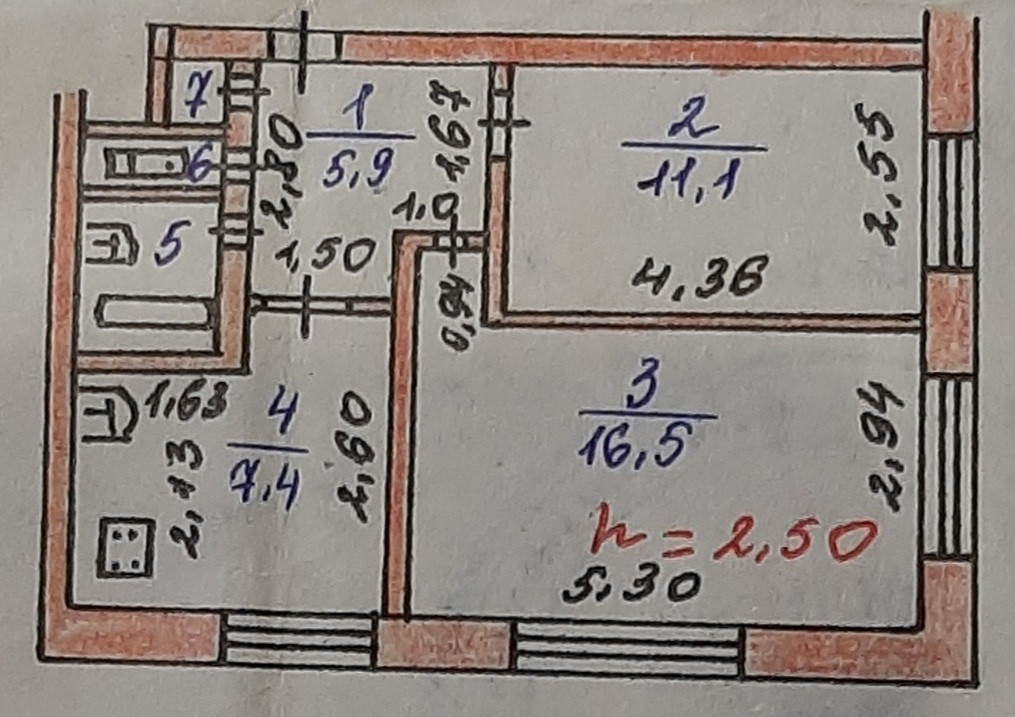 7
1
5,9
1,67
2
11,1
2,55
6
2,80
1,0
5
1,50
4,36
0,94
1,63
4
7,4
2,13
2,60
3
16,5
2,94
h = 2,50
5,30